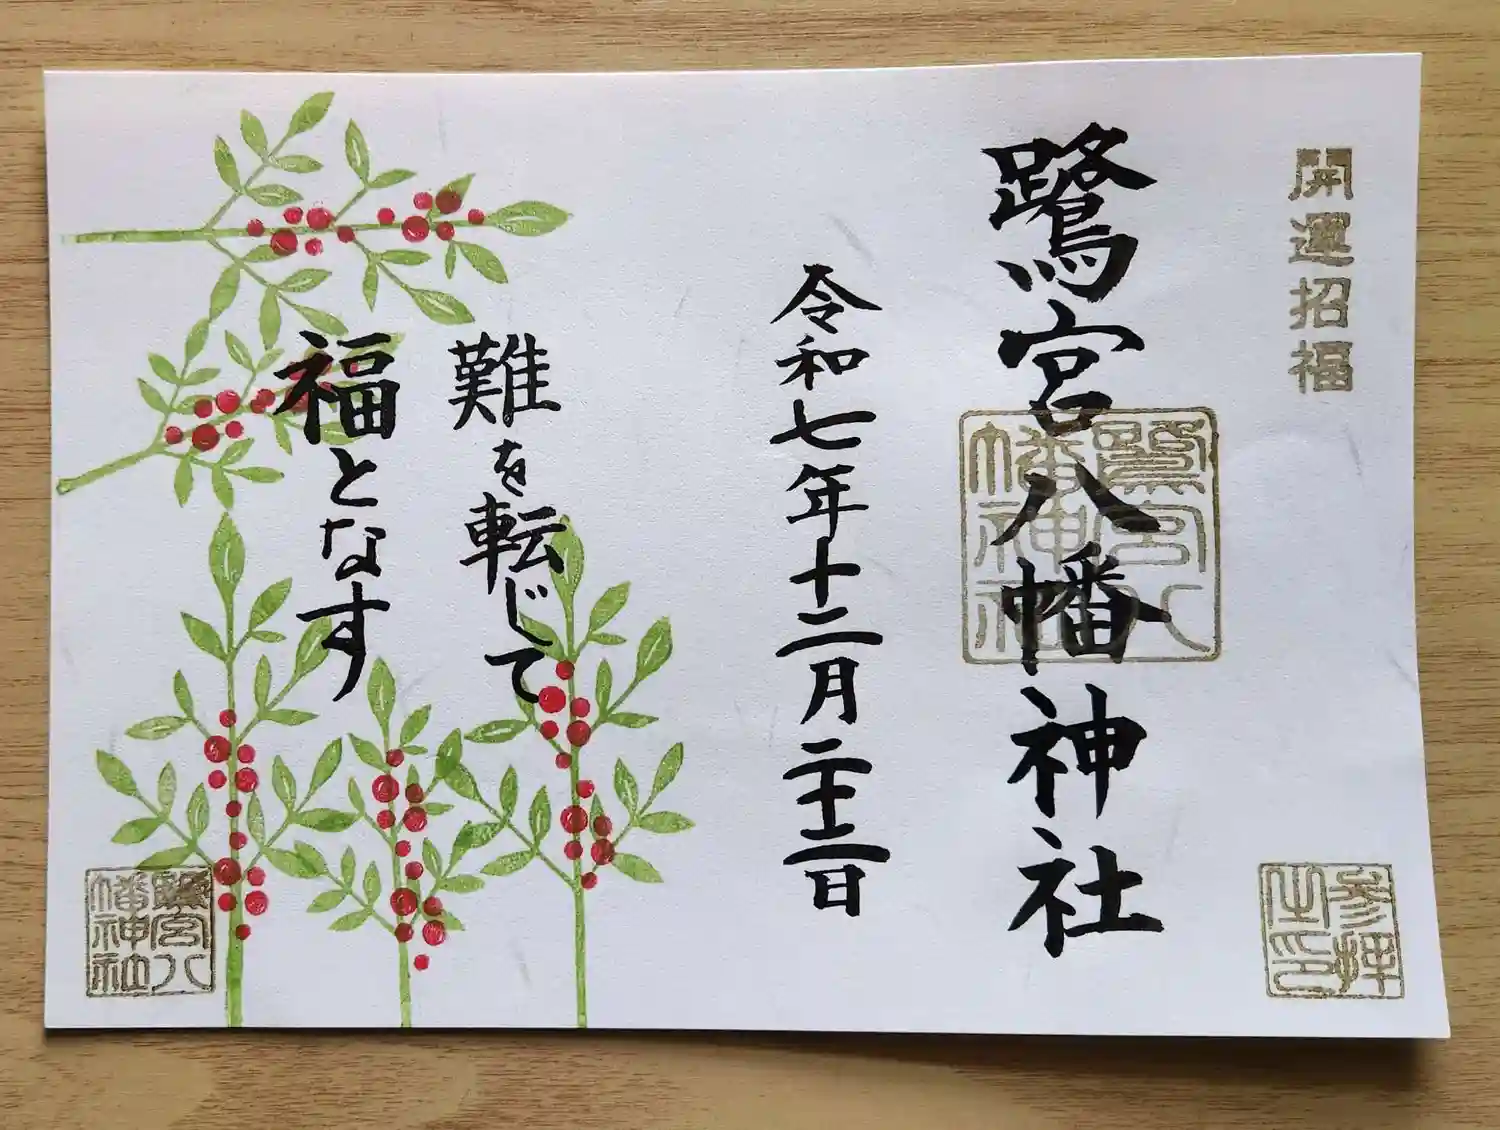 開運招福
参拝
之印
鷺宮八幡神社
鷺宮八
幡神社
令和七年十二月二十二日
難を転じて
福となす
鷺宮八
幡神社